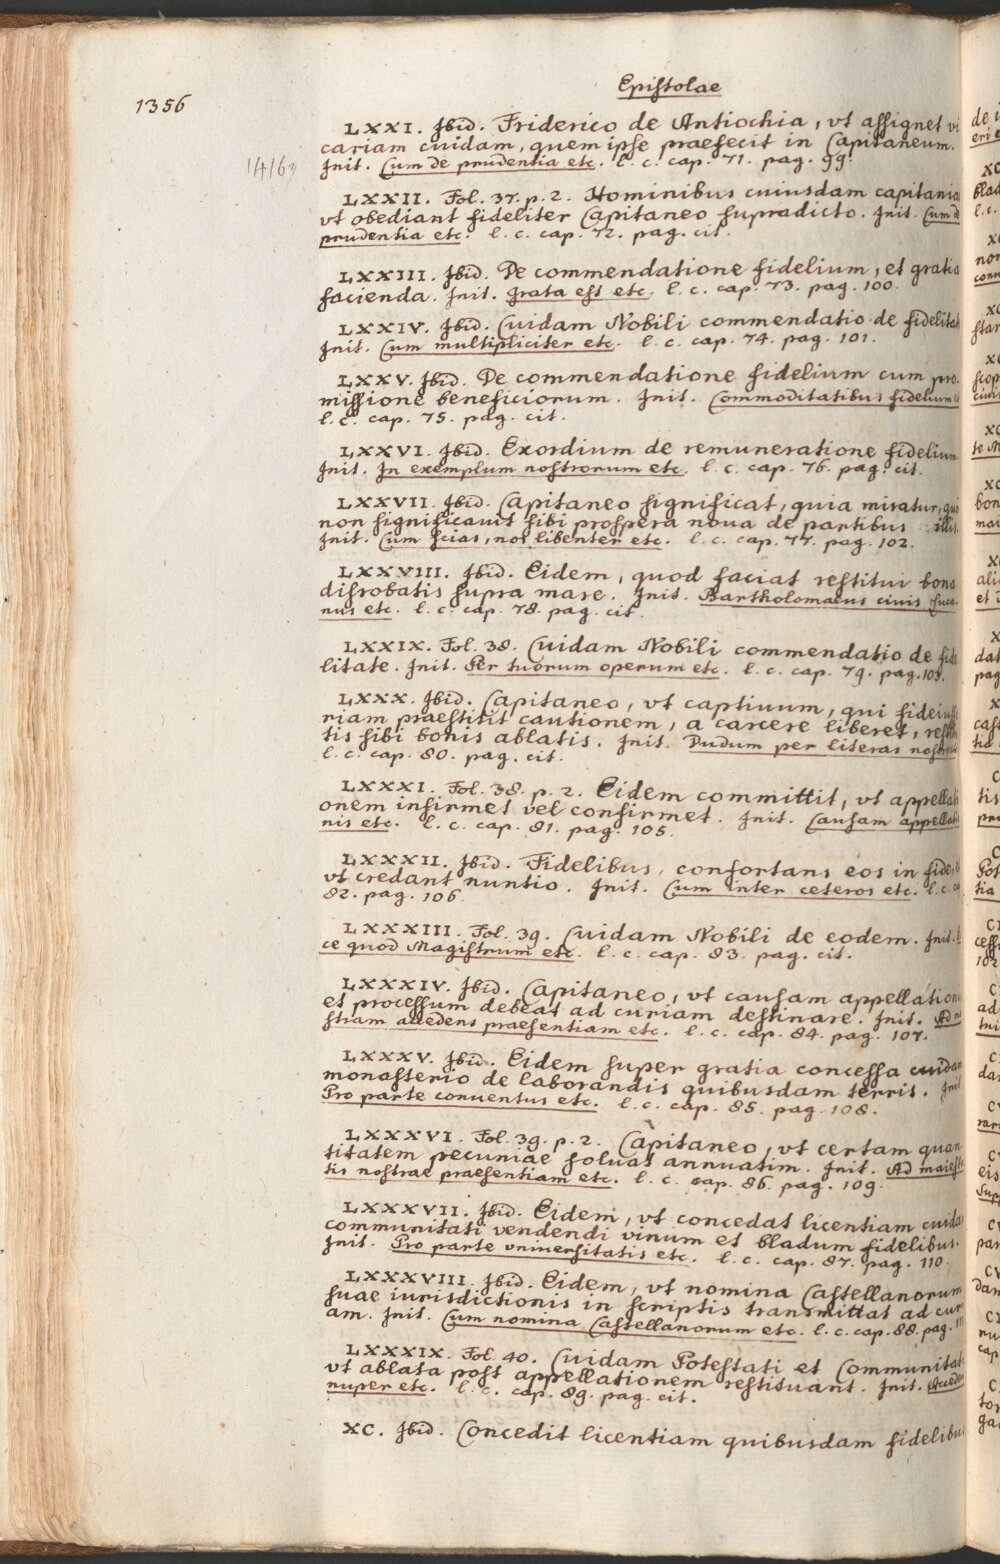 1356
Epistolae
LXXI. Ibid. Friderico de Antiochia, vt assignet vi
cariam cuidam, quem ipse praefecit in Capitaneum.
Init. Cum de prudentia etc. l. c. cap. 71. pag. 99.
LXXII. Fol. 37. p. 2. Hominibus cuiusdam capitania
vt obediant fideliter Capitaneo supradicto. Init. Cum de
prudentia etc. l. c. cap. 72. pag. cit.
LXXIII. Ibid. De commendatione fidelium, et gratia
facienda. Init. Grata est etc. l. c. cap. 73. pag. 100.
LXXIV. Ibid. Cuidam Nobili commendatio de fidelitat
Init. Cum multipliciter etc. l. c. cap. 74. pag. 101.
LXXV. Ibid. De commendatione fidelium cum pro-
missione beneficiorum. Init. Commoditatibus fidelium
l. c. cap. 75. pag. cit.
LXXVI. Ibid. Exordium de remuneratione fidelium
Init. In exemplum nostrorum etc. l. c. cap. 76. pag. cit.
LXXVII. Ibid. Capitaneo significat, quia miratur, qui
non significauit sibi prospera noua de partibus illis.
Init. Cum scias, nos libenter etc. l. c. cap. 77. pag. 102.
LXXVIII. Ibid. Eidem, quod faciat restitui bona
disrobatis supra mare. Init. Bartholomaeus ciuis
nus etc. l. c. cap. 78. pag. cit.
LXXIX. Fol. 38. Cuidam Nobili commendatio de fide
litate. Init. Per tuorum operum etc. l. c. cap. 79. pag. 103.
LXXX. Ibid. Capitaneo, vt captiuum, qui fideiuss
riam praestitit cautionem, a carcere liberet, resti
tis sibi bonis ablatis. Init. Dudum per literas nostras
l. c. cap. 80. pag. cit.
LXXXI. Fol. 38. p. 2. Eidem committit, vt appellati
onem infirmet vel confirmet. Init. Causam appellati
nis etc. l. c. cap. 81. pag. 105.
LXXXII. Ibid. Fidelibus, confortans eos in fide,
vt credant nuntio. Init. Cum inter ceteros etc. l. c. ca
82. pag. 106.
LXXXIII. Fol. 39. Cuidam Nobili de eodem. Init.
ce quod Magistrum etc. l. c. cap. 83. pag. cit.
LXXXIV. Ibid. Capitaneo, vt causam appellation
et processum debeat ad curiam destinare. Init. Ad no
stram accedens praesentiam etc. l. c. cap. 84. pag. 107.
LXXXV. Ibid. Eidem super gratia concessa cuidam
monasterio de laborandis quibusdam terris. Init
Pro parte conuentus etc. l. c. cap. 85. pag. 108.
LXXXVI. Fol. 39. p. 2. Capitaneo, vt certam quan
titatem pecuniae soluat annuatim. Init. Ad maiesta
tis nostrae praesentiam etc. l. c. cap. 86. pag. 109.
LXXXVII. Ibid. Eidem, vt concedat licentiam cuida
communitati vendendi vinum et bladum fidelibus.
Init. Pro parte vniuersitatis etc. l. c. cap. 87. pag. 110.
LXXXVIII. Ibid. Eidem, vt nomina Castellanorum
suae iurisdictionis in scriptis transmittat ad curi
am. Init. Cum nomina Castellanorum etc. l. c. cap. 88. pag. 111
LXXXIX. Fol. 40. Cuidam Potestati et Communitati
vt ablata post appellationem restituant. Init. Accedens
nuper etc. l. c. cap. 89. pag. cit.
XC. Ibid. Concedit licentiam quibusdam fidelibus